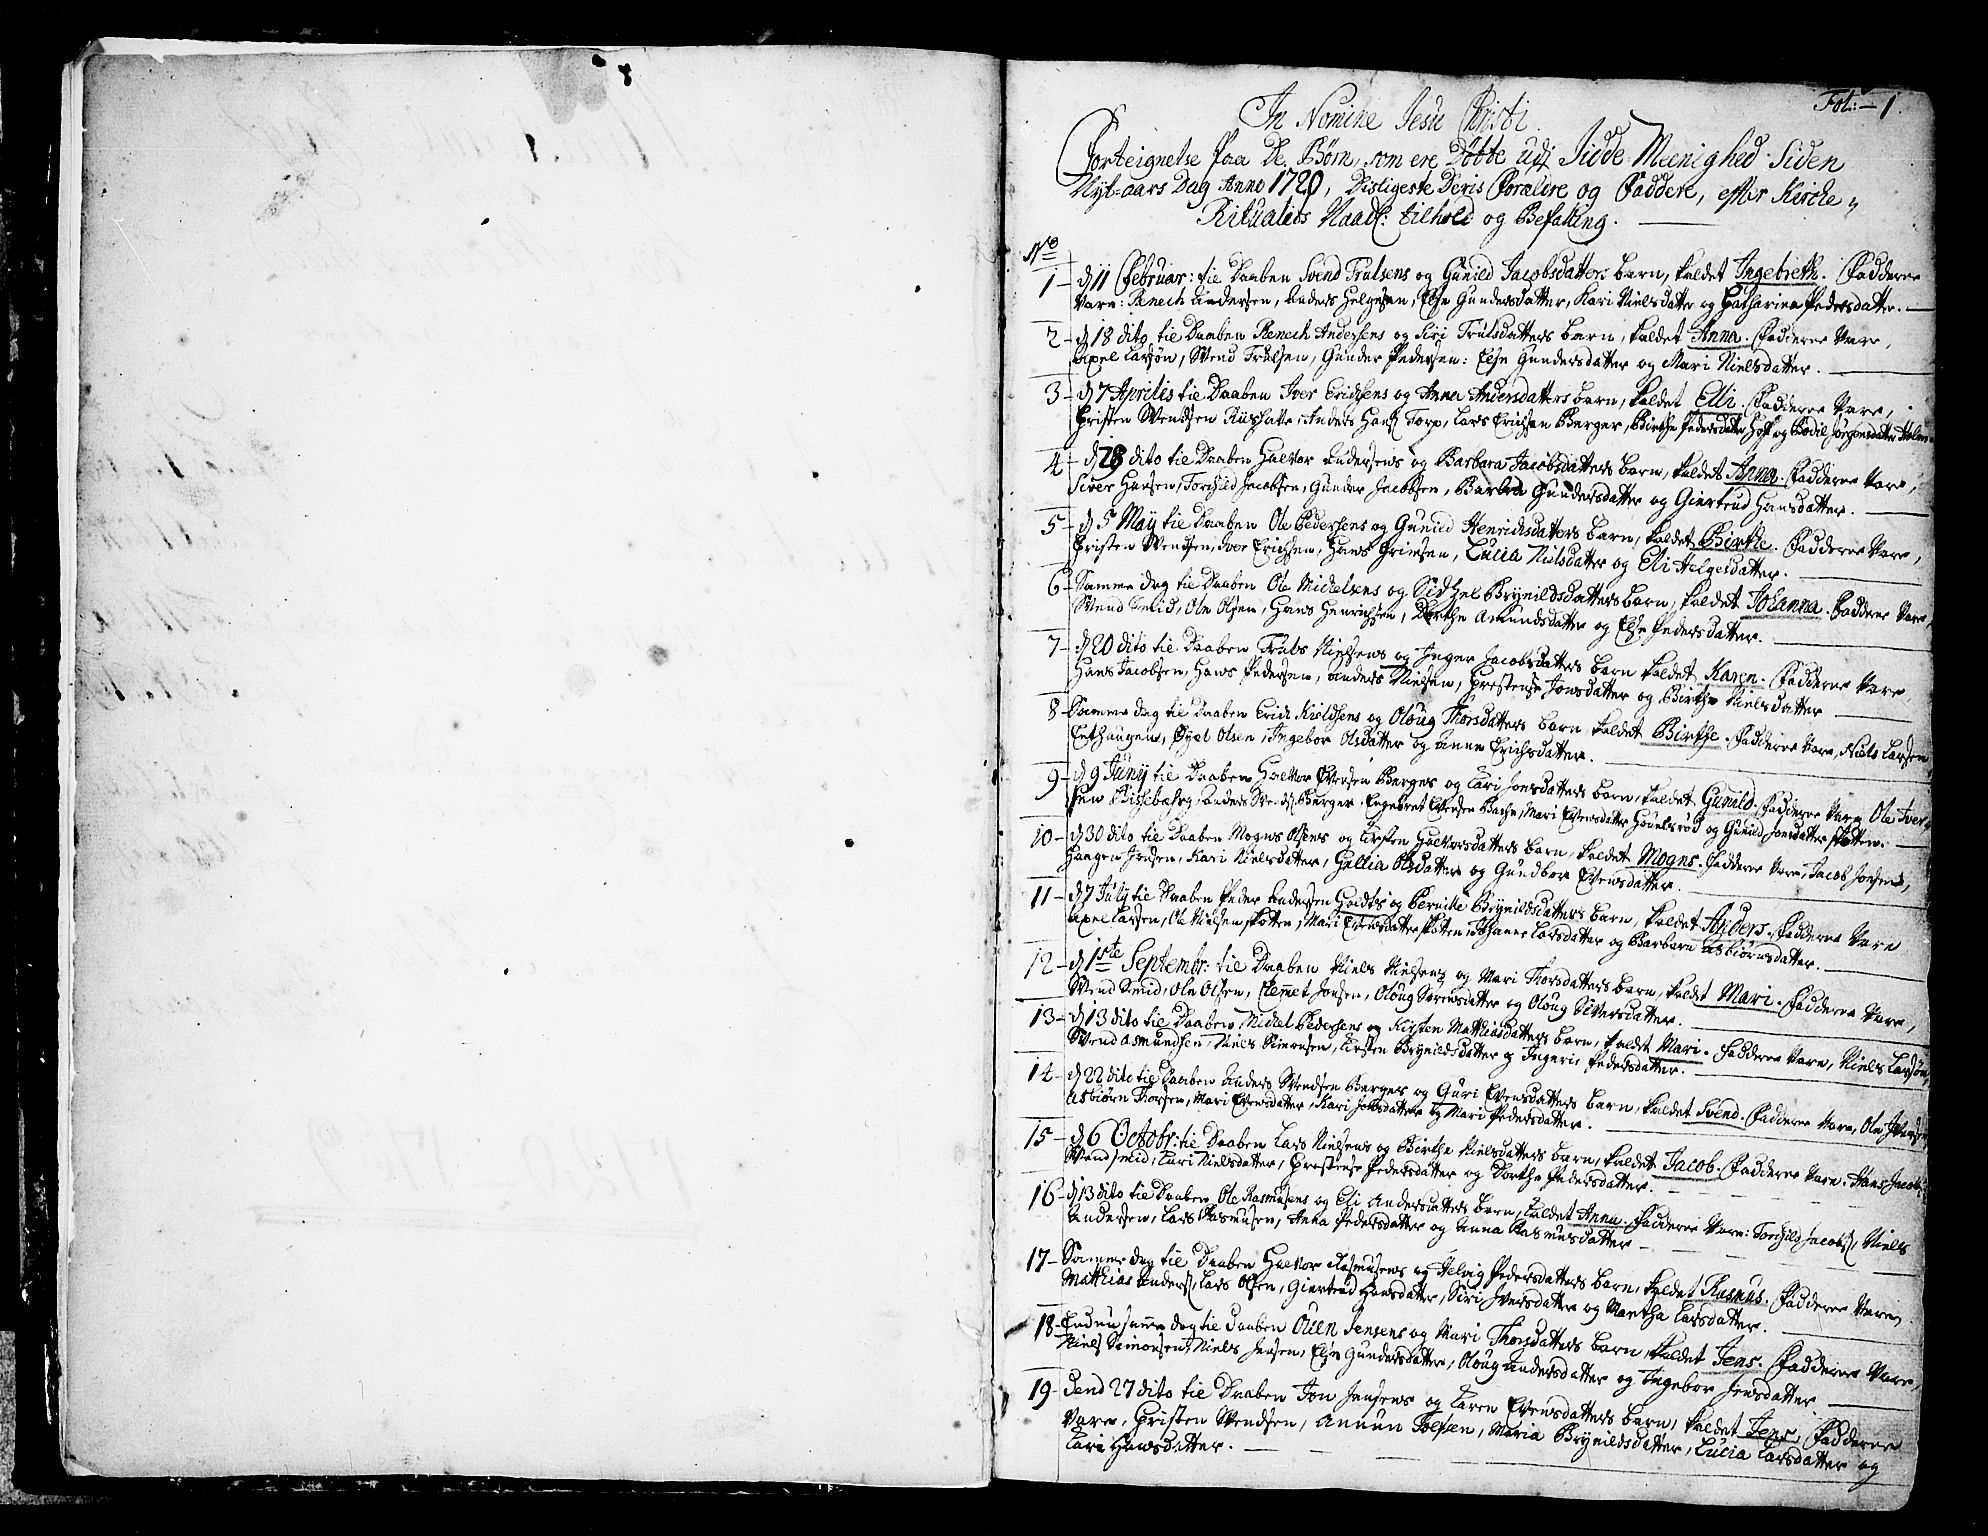 Fol:–1.
In Nomine Jesu Christi.
Forteignelse paa De Børn, som ere Døbte udj Jidde Mænighed Siden
Nyt-aars Dag Anno 1720, Disligeste Deris Forældre og Faddere, efter Kirche
Ritualets Naadl: tilhold og Befalling.
No
1 – d 11 Februar: til Daaben Svend Trulsens og Gunild Jacobsdatters barn, kaldet Ingebreth. Fadderne
Vare: Renech Andersen, Anders Helgesen, Else Gundersdatter, Kari Nielsdatter og Catharina Pedersdatter.
2 – d 18 dito til Daaben Renech Andersens og Siri Trulsdatters barn, kaldet Anna. Fadderne Vare,
Axel Larsøn, Svend Trulsen, Gunder Pedersen: Else Gundersdatter og Mari Nielsdatter.
3 – d 7 Aprilis til Daaben Iver Erichsens og Anna Andersdatters barn, kaldet Elli. Fadderne Vare,
Christen Svendsen Anders Hans Torp, Lars Erichsen Berger, Birthe Pedersdatter Hoff og Bodil
4 – d 28 dito til Daaben Halvor Andersens og Barbara Jacobsdatters barn, kaldet Anna. Fadderne Vare,
Siver Hansen, Torchild Jacobsen, Gunder Jacobsen, Barbra Gundersdatter og Giertrud Hansdatter.
5 – d 5 Maij til Daaben Ole Pedersens og Gunild Henrichsdatters barn, kaldet Birthe. Fadderne Vare,
Christen Svendsen, Iver Erichsen, Hans Grimsen, Lucia Nielsdatter og Eli Helgesdatter.
6 – Samme dag til Daaben Ole Michelsens og Sidtzel Brynildsdatters barn, kaldet Johanna. Fadderne Vare,
Svend Smid, Ole Olsen, Hans Henrichsen, Dorthe Amundsdatter og Else Pedersdatter.
7 – d 20 dito til Daaben Truls Nielsens og Inger Jacobsdatters barn kaldet Karen. Fadderne Vare
Hans Jacobsen, Hans Pedersen, Anders Nielsen, Chrestense Jonsdatter og Birthe Nielsdatter
8 – Samme dag til Daaben Erich Kieldsens og Oloug Thorsdatters barn kaldet Birthe. Fadderne Vare, Niels Larsen
Enthaugen, Olsen, Ingebor Olsdatter og Anne Erichsdatter.
9 – d 9 Junij til Daaben Halvor Evensen Berges og Kari Jonsdatters barn, kaldet Gunild. Fadderne Vare Ole Iver-
sen Bissebaherg, Anders Svends. Berger, Engebret Evensen Mari Evensdatter og Gunild Jonsdatter skotten.
10 – d 30 dito til Daaben Mogns Olsens og Kirsten Halvorsdatters barn, kaldet Mogns. Fadderne Vare, Jacob Jonsen,
Haagen Jensen, Kari Nielsdatter, Gallia Olsdatter og Gundbor Evensdatter.
11 – d 7 Julij til Daaben Peder Andersen Holdts og Pernille Brynildsdatters barn, kaldet Anders. Fadderne Vare
Axel Larsen, Ole Nielsen skotten, Mari Evensdatter skoten, Johanne Larsdatter og Barbara Asbiørnsdatter.
12 – d 1ste Septembr: til Daaben Niels Nielsens og Mari Thorsdatters barn, kaldet Mari. Fadderne Vare,
Svend Smid, Ole Olsen, Clemet Jonsen, Oloug Sørensdatter og Oloug Siversdatter.
13 – d 13 dito til Daaben Michel Pedersens og Kirsten Matthiasdatters barn, kaldet Mari. Fadderne Vare, Niels Larsøn,
Svend Asmundsen, Niels Simonsen, Kirsten Brynildsdatter og Ingerii Pedersdatter.
14 – d 22 dito til Daaben Anders Svendsen Berges og Guri Evensdatters barn, kaldet Svend. Fadderne Vare, Ole Iversen
Asbiørn Thorsen, Mari Evensdatter, Kari Jonsdatter og Mari Pedersdatter.
15 – d 6 Octobr: til Daaben Lars Nielsens og Birthe Nielsdatters barn, kaldet Jacob. Fadderne Vare: Hans Jacobs.
Svend smid, Kari Nielsdatter, Chrestense Pedersdatter og Dorthe Pedersdatter.
16 d 13 dito til Daaben Ole Rasmusens og Eli Andersdatters barn, kaldet Anna. Fadderne Vare: Torchild Jacobs. Niels
Andersen, Lars Rasmusen, Anna Pedersdatter og Anna Rasmusdatter
17 – Samme dag til Daaben Halvor Rasmusens og Helvig Pedersdatters barn, kaldet Rasmus. Fadderne Vare,
Matthias Anders. Lars Olsen, Giertrud Hansdatter, Siri Iversdatter og Martha Larsdatter.
18 – Endnu same dag til Daaben Ouen Jensens og Mari Thorsdatters barn, kaldet Jens. Fadderne Vare,
Niels Simonsen, Niels Jensen, Else Gundersdatter, Oloug Andersdatter og Ingebor Jensdatter
19 – dend 27 dito til Daaben Jon Jensens og Karen Evensdatters barn, kaldet Jens, Fadderne
Vare, Christen Svendsen, Amun Tolfsen, Maria Brynildsdatter, Lucia Larsdatter og
Kari Hansdatter.